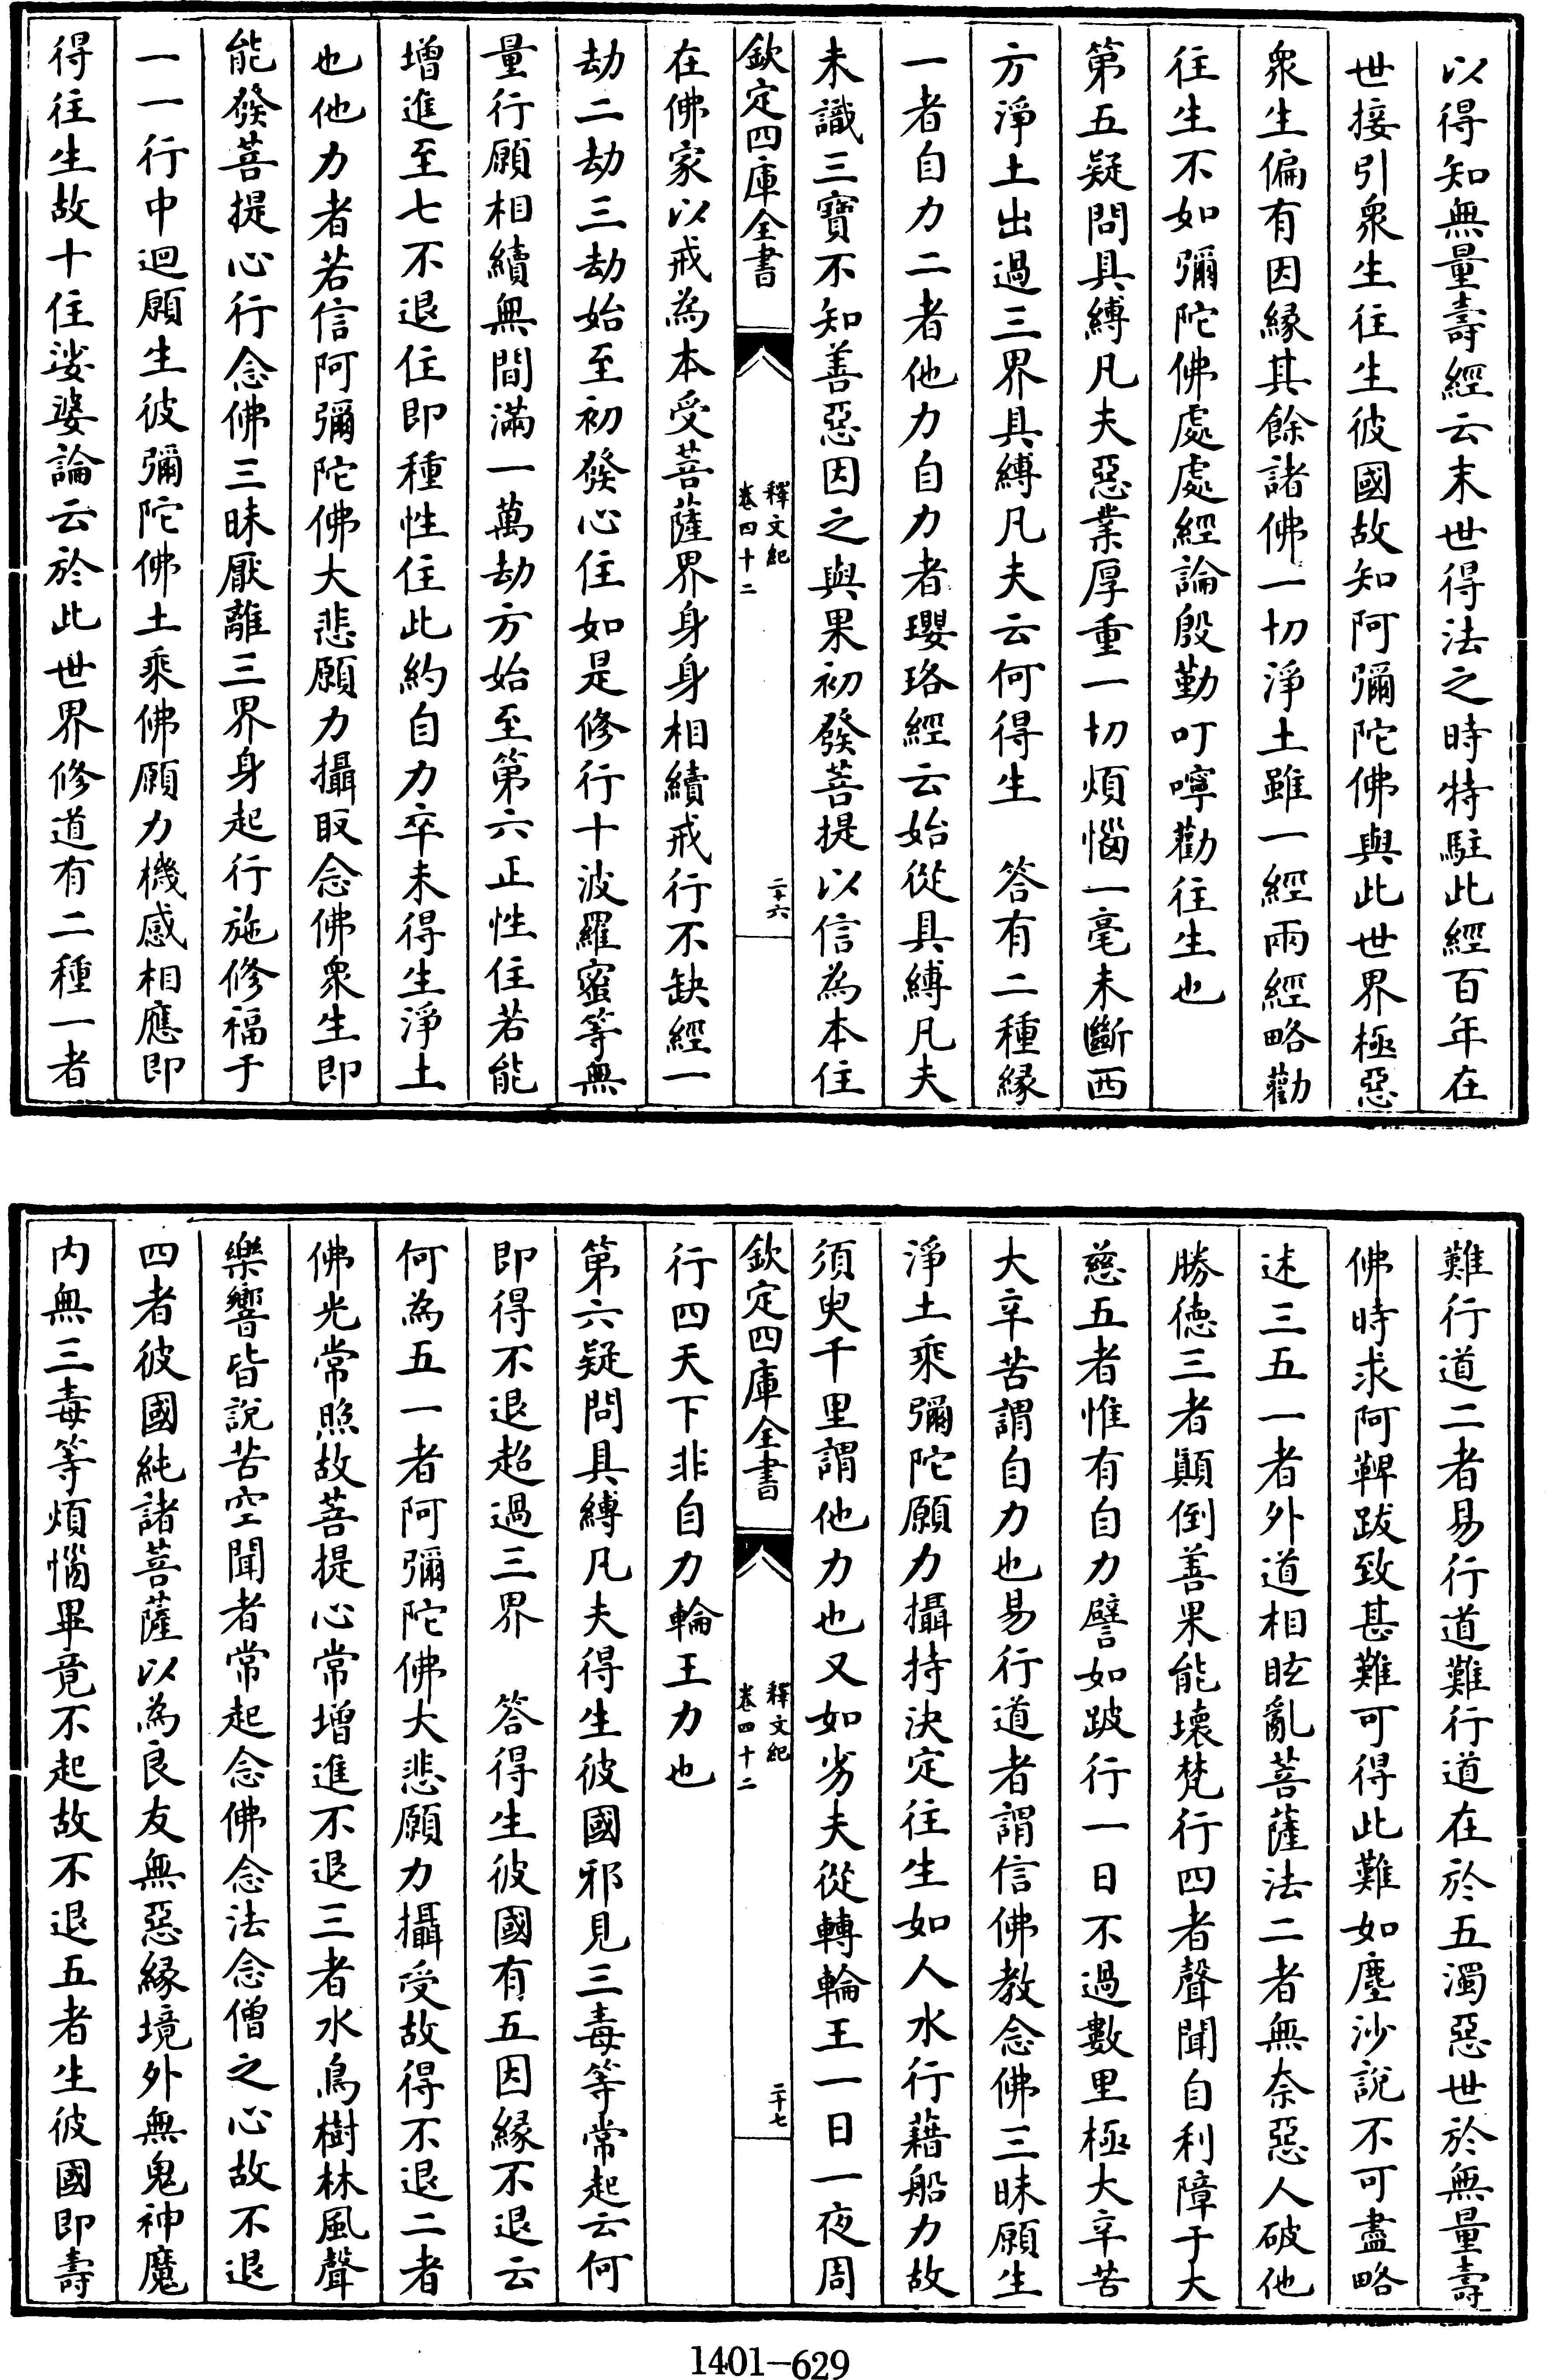 以得知無量壽經云末世得法之時特駐此經百年在
世接引衆生往生彼國故知阿彌陀佛與此世界極惡
衆生偏有因緣其餘諸佛一切淨土雖一經兩經略勸
往生不如彌陀佛處處經論殷勤叮嚀勸往生也
第五疑問具縛凡夫惡業厚重一切煩惱一毫未斷西
方淨土出過三界具縛凡夫云何得生　答有二種緣
一者自力二者他力自力者瓔珞經云始從具縛凡夫
未識三寶不知善惡因之與果初發菩提以信為本住
欽定四庫全書
釋文紀
卷四十二
二十六
在佛家以戒為本受菩薩界身身相續戒行不缺經一
劫二劫三劫始至初發心住如是修行十波羅蜜等無
量行願相續無間滿一萬劫方始至第六正性住若能
增進至七不退住即種性住此約自力卒未得生淨土
也他力者若信阿彌陀佛大悲願力攝取念佛衆生即
能發菩提心行念佛三昧厭離三界身起行施修福于
一一行中迴願生彼彌陀佛土乘佛願力機感相應即
得往生故十住娑婆論云於此世界修道有二種一者
難行道二者易行道難行道在於五濁惡世於無量壽
佛時求阿鞞跋致甚難可得此難如塵沙說不可盡略
述三五一者外道相眩亂菩薩法二者無奈惡人破他
勝德三者顛倒善果能壞梵行四者聲聞自利障于大
慈五者惟有自力譬如跛行一日不過數里極大辛苦
大辛苦謂自力也易行道者謂信佛教念佛三昧願生
淨土乘彌陀願力攝持決定往生如人水行藉船力故
須臾千里謂他力也又如劣夫從轉輪王一日一夜周
欽定四庫全書
釋文紀
卷四十二
二十七
行四天下非自力輪王力也
第六疑問具縛凡夫得生彼國邪見三毒等常起云何
即得不退超過三界　答得生彼國有五因緣不退云
何為五一者阿彌陀佛大悲願力攝受故得不退二者
佛光常照故菩提心常增進不退三者水鳥樹林風聲
樂響皆說苦空聞者常起念佛念法念僧之心故不退
四者彼國純諸菩薩以為良友無惡緣境外無鬼神魔
內無三毒等煩惱畢竟不起故不退五者生彼國即壽
1401—629